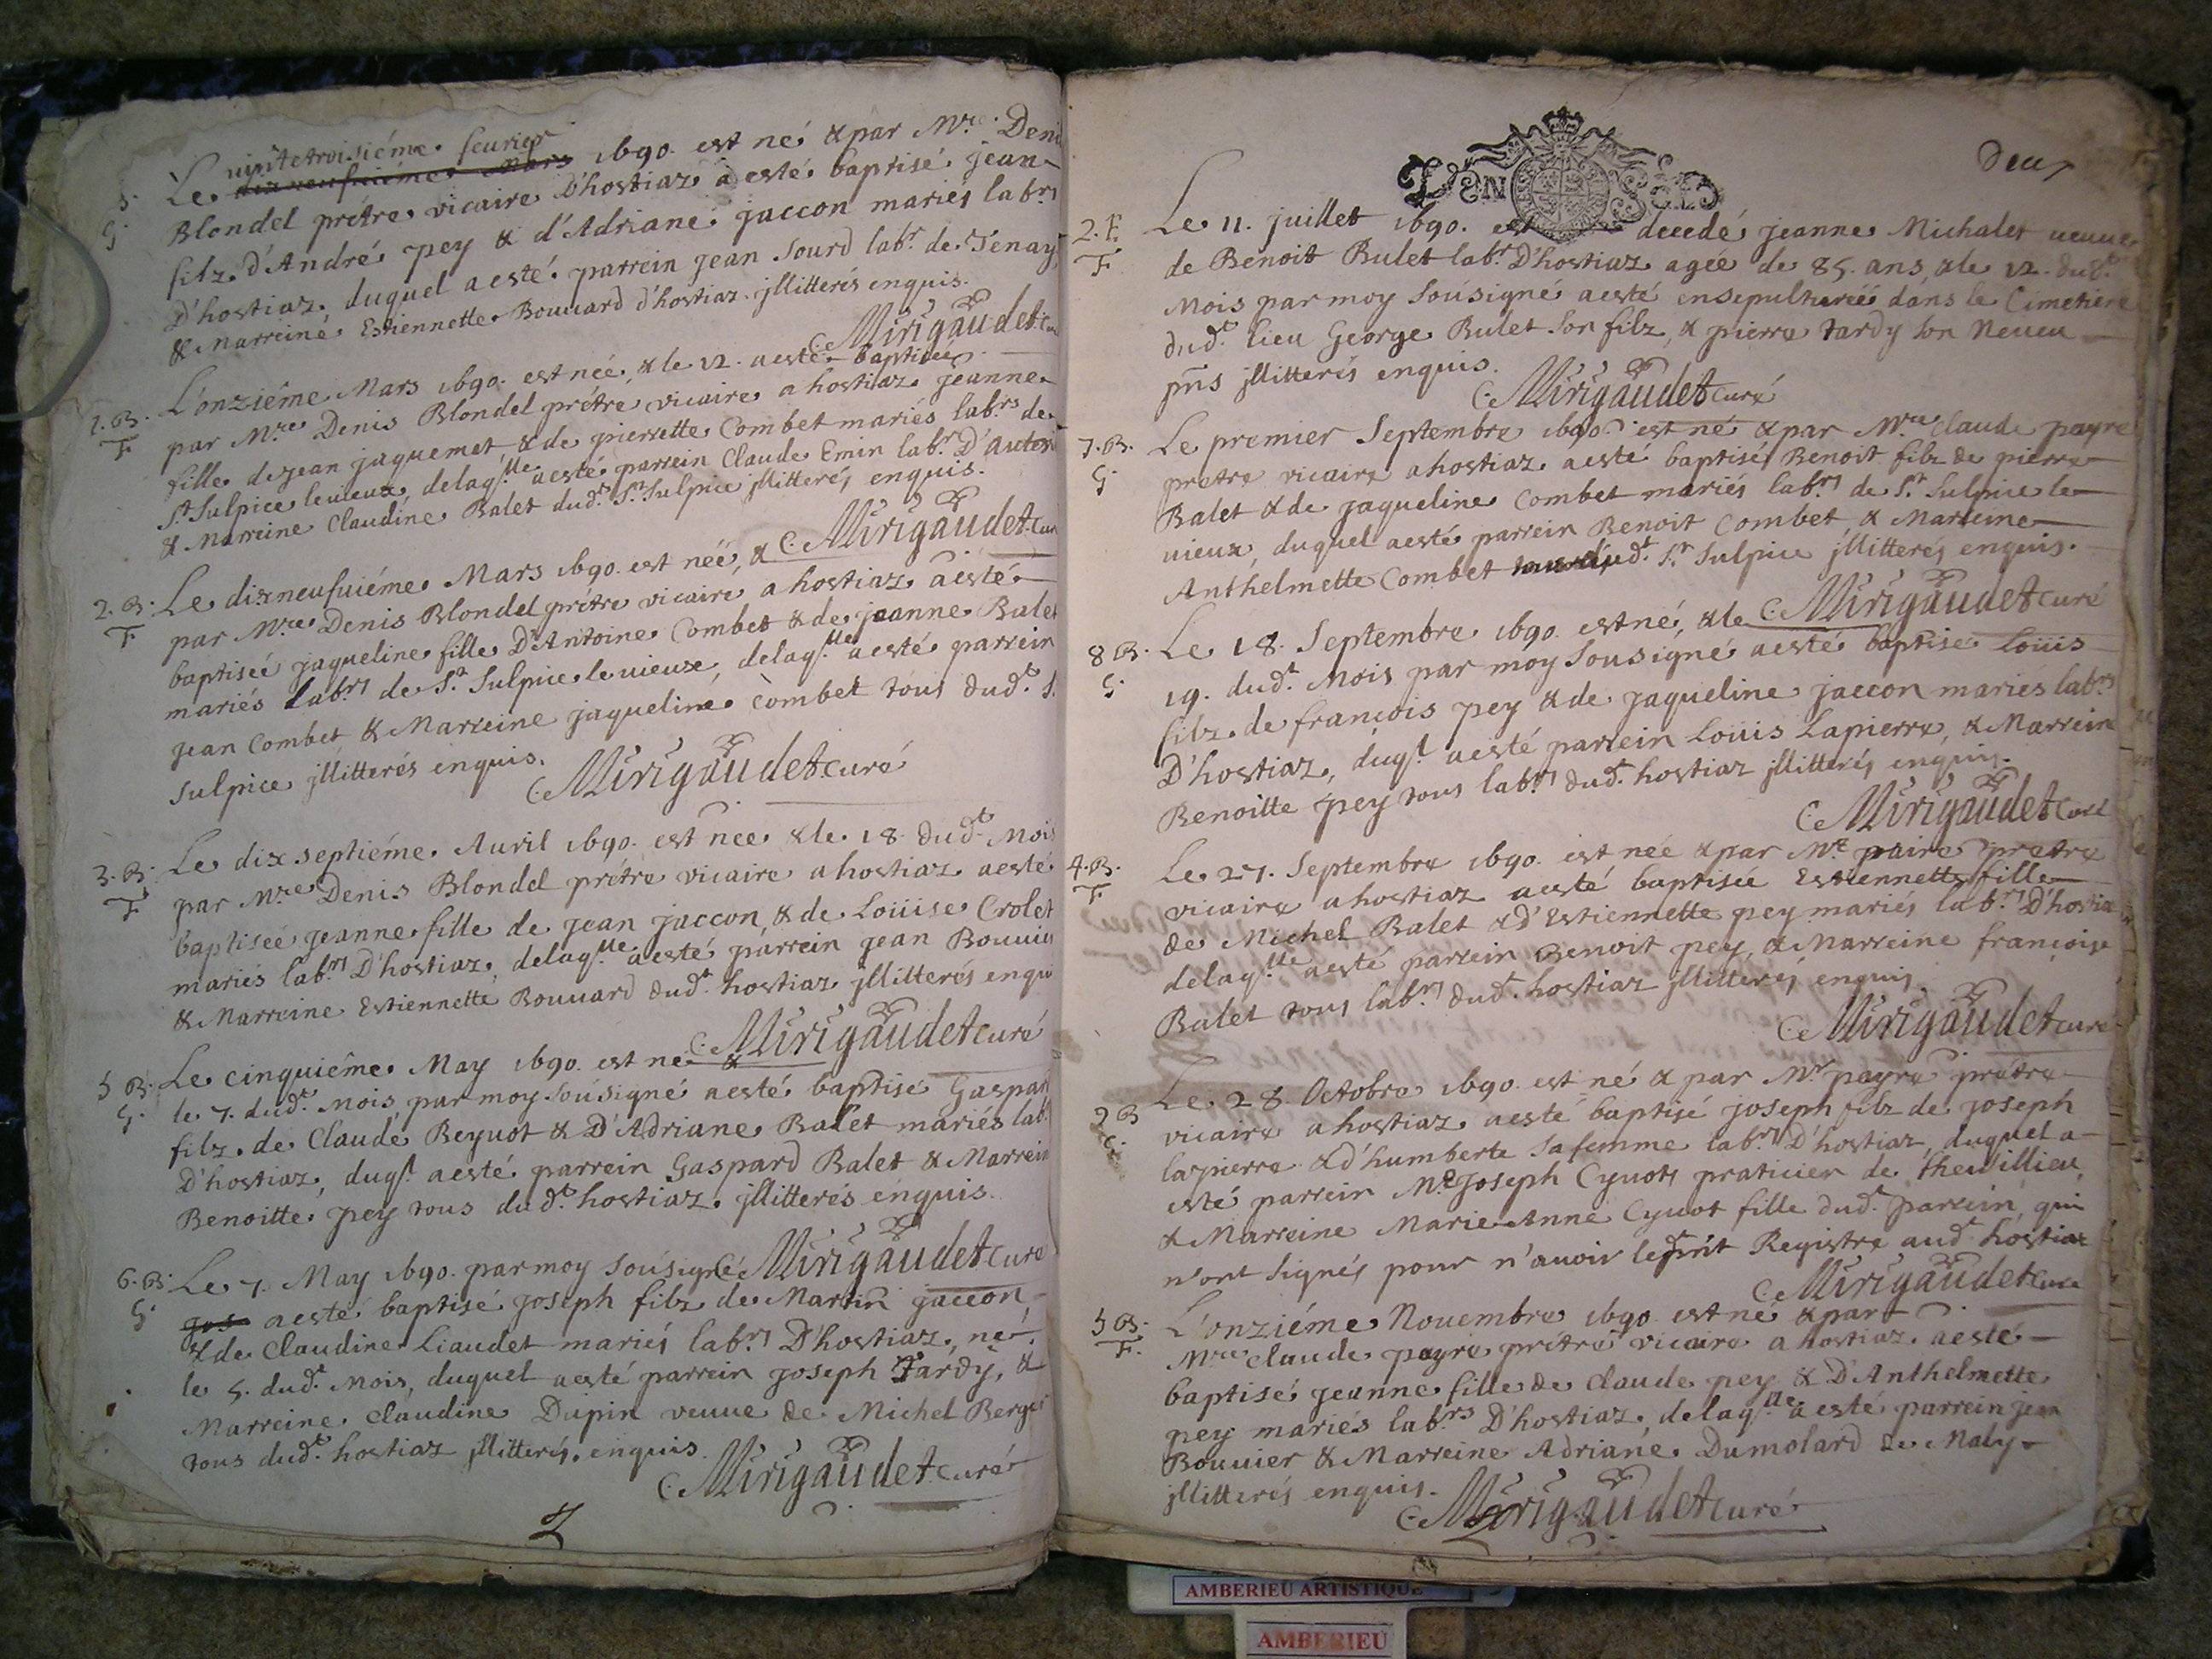 vinte troisiéme feurier
Le dixneufuiéme Mars 1690. est né & par Mre. Deni
3.
G.
Blondel prétre vicaire D'hostiaz a esté baptisé jean
filz d'André pey & d'Adriane jaccon mariés labrs
D'hostiaz, duquel a esté parrein jean Sourd labr. de Tenay
& Marreine Estiennette Bouuard d'hostiaz jllitterés enquis.
C. Mirigaudet Cu
1. B.
F
L'onziême Mars 1690. est née, & le 12. a esté baptisée
par Mre Denis Blondel prétre vicaire a hostiaz jeanne
fille de jean jaquemet, & de pierrette Combet mariés labrs de
St. Sulpice le vieux, delaqlle a esté parrein Claude Emin labr. D'
& Marreine Claudine Balet dudt. St. Sulpice jllitterés enquis.
C. Mirigaudet Cur
2. B.
F
Le dixneufuiéme Mars 1690. est née, &
par Mre Denis Blondel prétre vicaire a hostiaz a esté
baptisée jaqueline fille D'Antoine Combet & de jeanne Balet
mariés labrs de St. Sulpice le vieux, delaqlle a esté parrein
jean Combet & Marreine jaqueline Combet tous dudt. S.
Sulpice jllitterés enquis.
C. Mirigaudet curé
3. B.
F
Le dix septiéme Auril 1690. est née & le 18 dudt. Mois
par Mre Denis Blondel prétre vicaire a hostiaz a esté
baptisée jeanne fille de jean jaccon, & de Loüise Crolet
mariés labrs D'hostiaz, delaqlle a esté parrein jean Bouuier
& Marreine Estiennette Bouuard dudt. hostiaz jllitterés enqui
C. Mirigaudet curé
5 B.
G.
Le cinquiême May 1690. est né &
le 7. dudt. Mois par moy sousigné a esté baptisé Gaspard
filz de Claude Beyuot & D'Adriane Balet mariés lab
D'hostiaz, duql. a esté parrein Gaspard Balet & Marrein
Benoitte pey tous dudt. hostiaz jllitterés enquis.
C. Mirigaudet Curé
6. B.
G
Le 7. May 1690. par moy sousigné
jos a esté baptisé joseph filz de Martin jaccon,
& de Claudine Liaudet mariés labrs D'hostiaz, né
le 5. dudt. Mois, duquel a esté parrein joseph Tardy, &
Marreine Claudine Dupin veuue de Michel Berger
tous dudt. hostiaz jllitterés enquis.
C. Mirigaudet curé
Deux
DEN SEL
2. E.
F
Le 11. juillet 1690. est decedé jeanne Michalet veuue
de Benoit Bulet labr. D'hostiaz agée de 85. ans, & le 12. dudt.
Mois par moy sousigné a esté ensepulturéé dans le Cimetiere
dudt. lieu George Bulet son filz, & pierre tardy son Neueu
pñs jllitterés enquis.
C. Mirigaudet curé
7. B.
G
Le premier Septembre 1690. est né & par Mre Claude payre
pretre vicaire a hostiaz a esté baptisé Benoit filz de pierre
Balet & de jaqueline Combet mariés labrs de St. Sulpice le
vieux, duquel a esté parrein Benoit Combet, & Marreine
Anthelmette Combet dudt. St. Sulpice jllitterés enquis.
C. Mirigaudet curé
8 B.
G.
Le 18. Septembre 1690. est né, & le
19. dudt. Mois par moy Sousigné a esté baptisé Loüis
filz de françois pey & de jaqueline jaccon mariés labrs
D'hostiaz, duql. a esté parrein Loüis Lapierre, & Marreine
Benoitte pey tous labrs dudt. hostiaz jllitterés enquis.
C. Mirigaudet Curé
4. B.
F
Le 27. Septembre 1690. est née & par Mre paire pretre
vicaire a hostiaz a esté baptisée Estiennette fille
de Michel Balet & d'Estiennette pey mariés labrs D'hostiaz
delaqlle a esté parrein Benoit pey, & Marreine françoise
Balet tous labrs dudt. hostiaz jllitterés enquis.
C. Mirigaudet curé
9 B
G.
Le 28. Octobre 1690. est né & par Mre payre prétre
vicaire a hostiaz a esté baptisé joseph filz de joseph
lapierre & d'humberte sa femme labrs D'hostiaz, duquel a
esté parrein Me. Joseph Cyuot praticien de theuillieu
& Marreine Marie Anne Cyuot fille dudt. parrein, qui
n'ont signés pour n'auoir le pnt Registre audt. hostiaz
C. Mirigaudet Curé
5 B.
F.
L'onziéme Nouembre 1690. est né & par
Mre Claude payre prétre vicaire a hostiaz a esté
baptisé jeanne fille de Claude pey & D'Anthelmette
pey mariés labrs D'hostiaz, delaqlle a esté parrein jean
Bouuier & Marreine Adriane Dumolard de Naly
jllitterés enquis.
C. Mirigaudet curé
AMBERIEU ARTISTIQUE
AMBERIEU